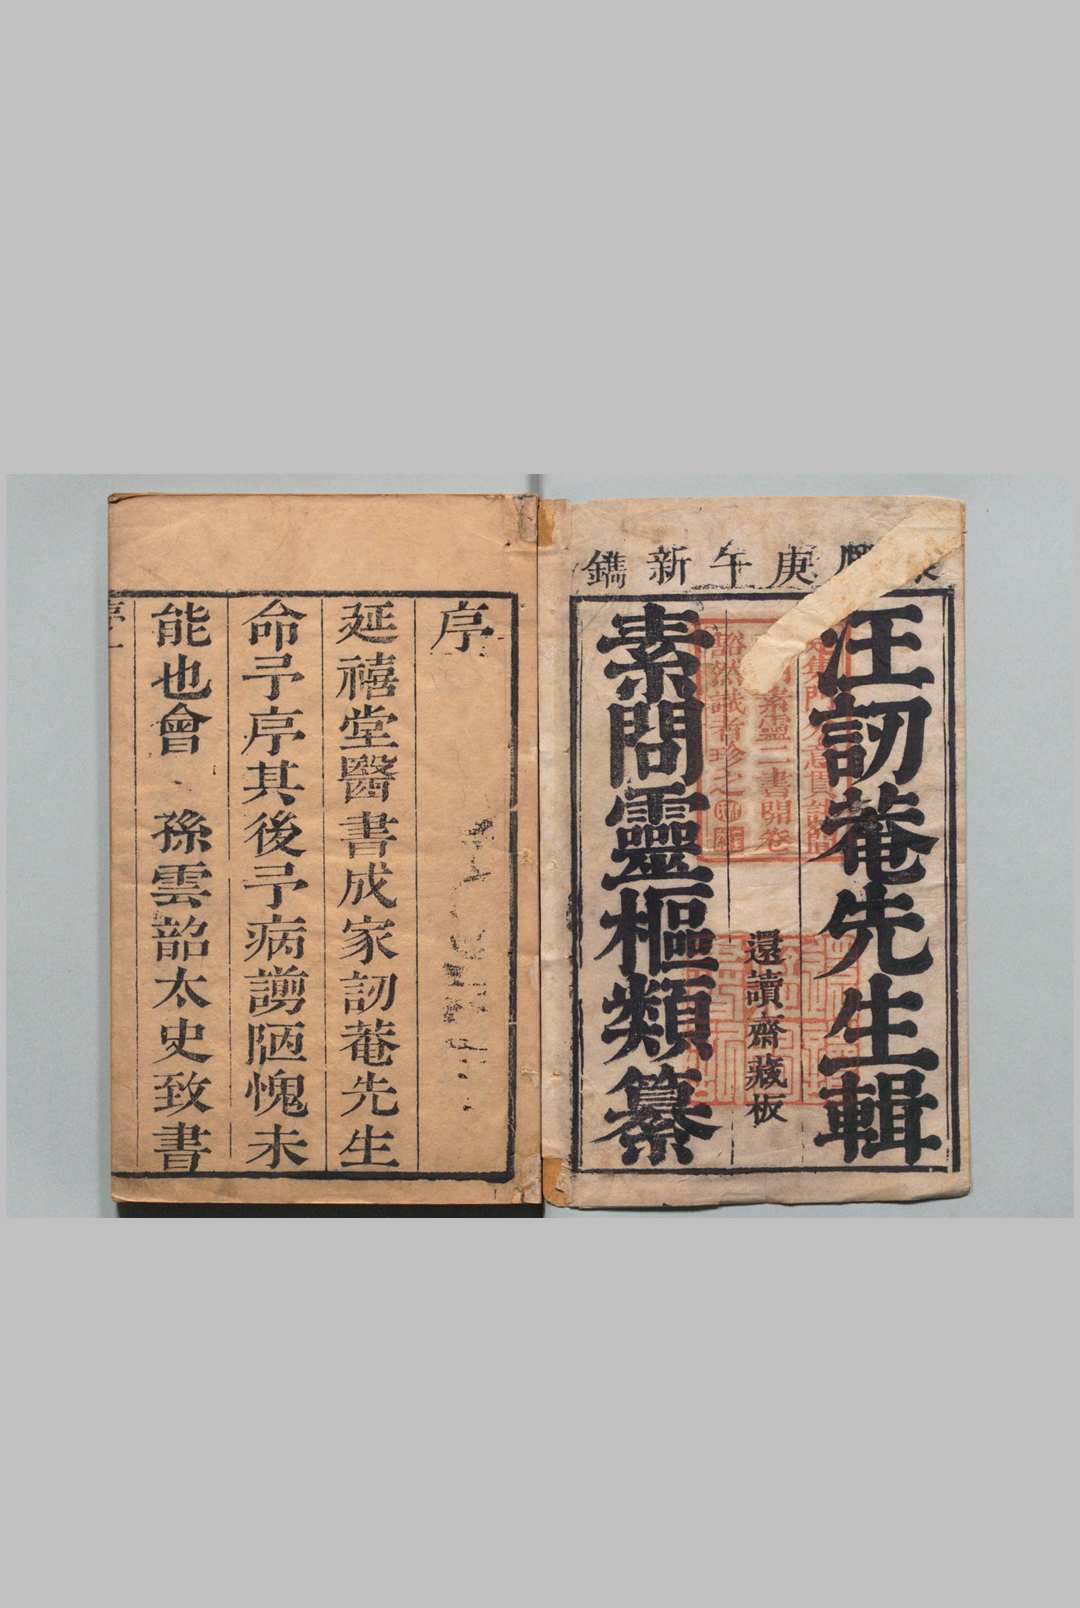 庚午新鐫
汪訒菴先生輯
素靈二書開卷
豁然識者珍之
還讀齋藏板
素問靈樞類纂
序
延禧堂醫書成家訒菴先生
命予序其後予病謭陋愧未
能也會 孫雲韶太史致書